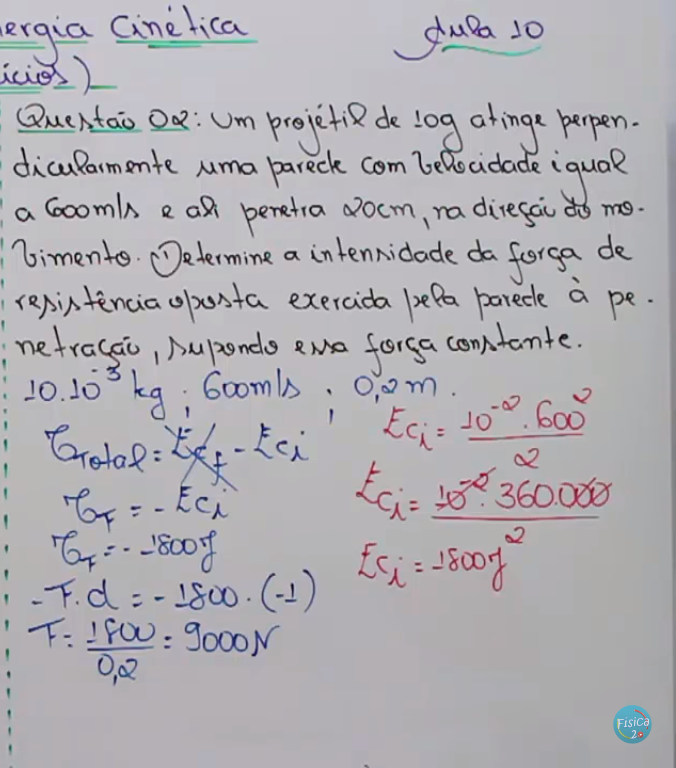 ergia Cinética
Aula 10
ícios)
Questão 02: Um projétil de 10g atinge perpen-
dicularmente uma parede com velocidade igual
a 600m/s e ali penetra 20cm, na direção do mo-
vimento. Determine a intensidade da força de
resistência oposta exercida pela parede à pe-
netração, supondo essa força constante.
10.10⁻³ kg ; 600m/s ; 0,2m.
τTotal = Ecf - Eci
τF = - Eci
τF = - 1800J
- F.d = - 1800 . (-1)
F = 1800/0,2 = 9000N
Eci = 10⁻².600²/2
Eci = 10⁻².360.000/2
Eci = 1800J
Física
2.0